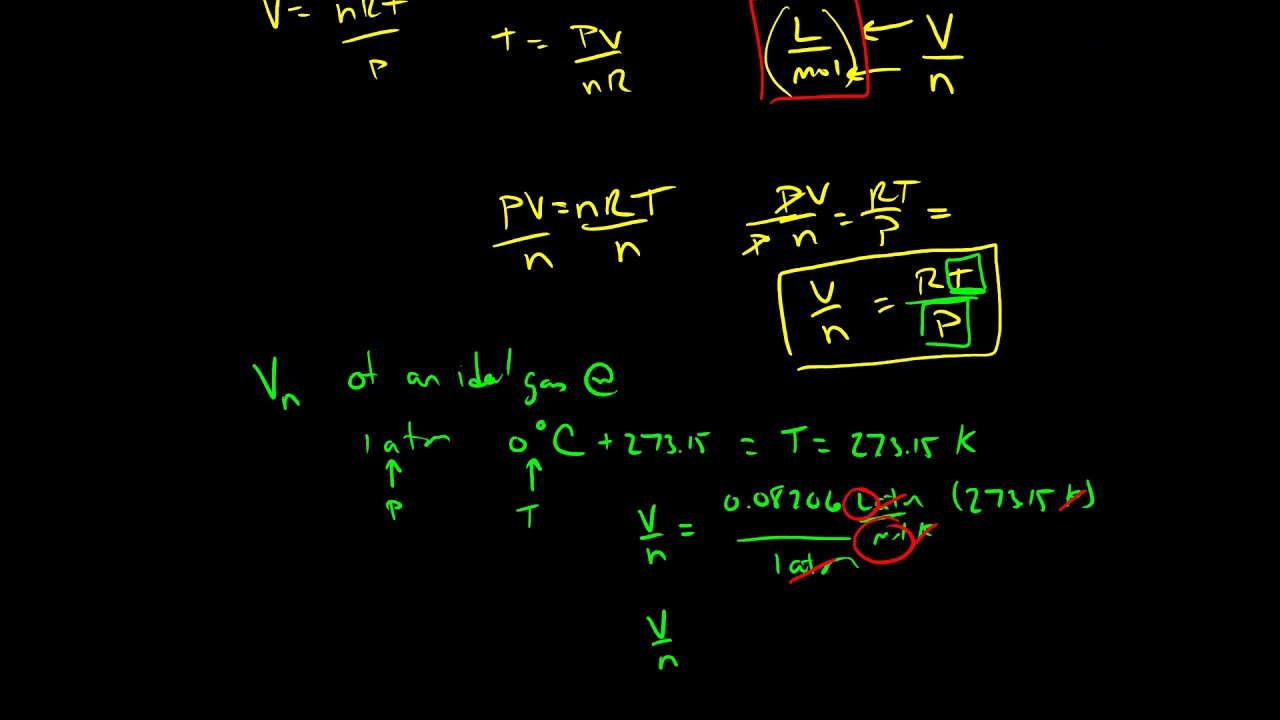 V = nRT / P
T = PV / nR
(L / mol) ← V / n
PV / n = nRT / n
PV / P n = RT / P =
V / n = RT / P
Vn of an ideal gas @
1 atm 0°C + 273.15 = T = 273.15 K
↑ ↑
P T
V / n = 0.08206 L atm / mol K (273.15 K) / 1 atm
V / n